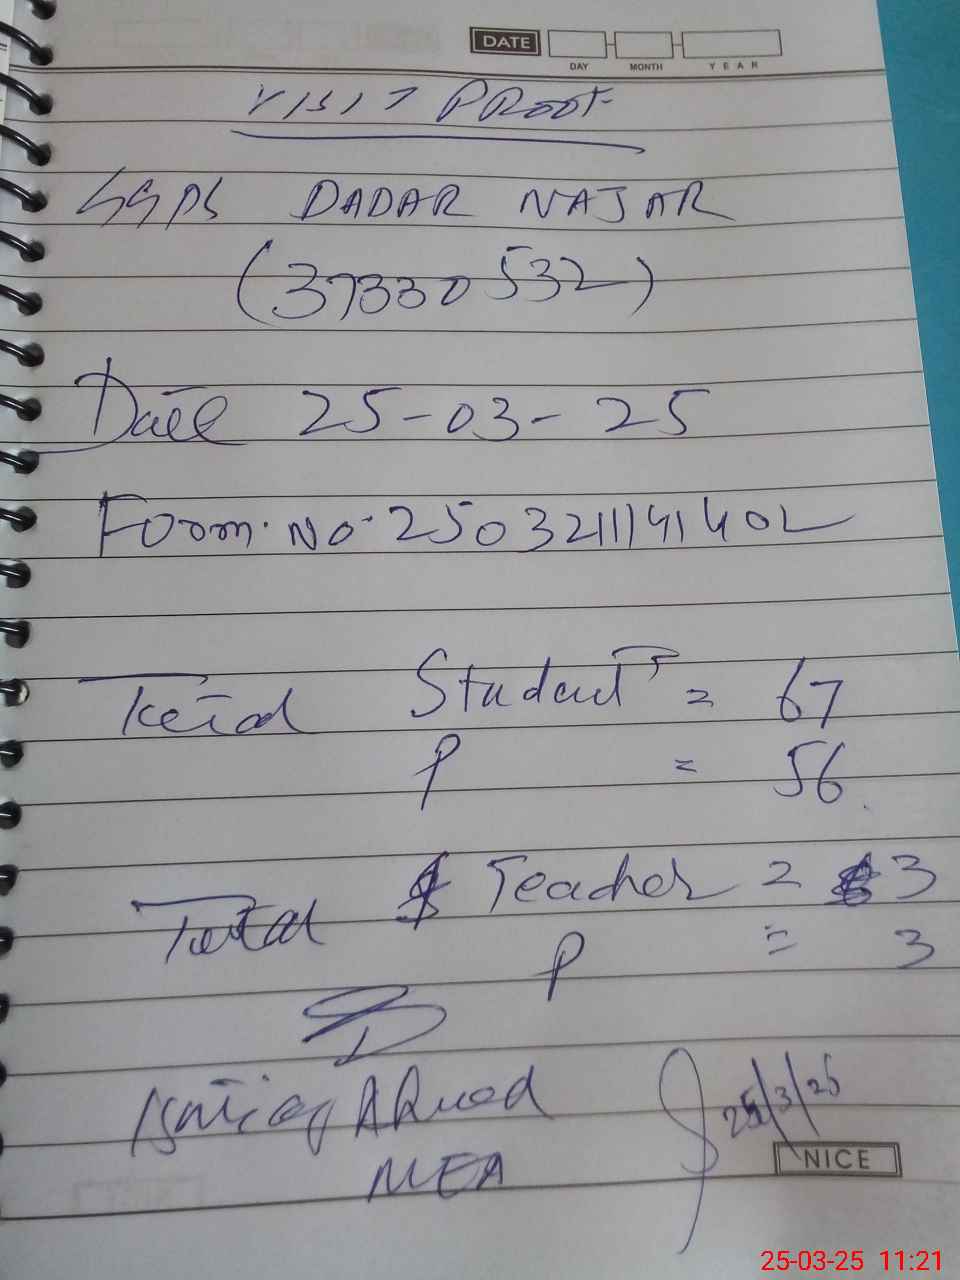 DATE
DAY MONTH YEAR
VISIT PROOF
GGPS DADAR NAJAR
(37330532)
Date 25-03-25
Form. No. 2503211141402
Total Student = 67
P = 56
Total Teacher = 3
P = 3
Ishtiaq Ahmad
MEA
25/3/25
NICE
25-03-25 11:21